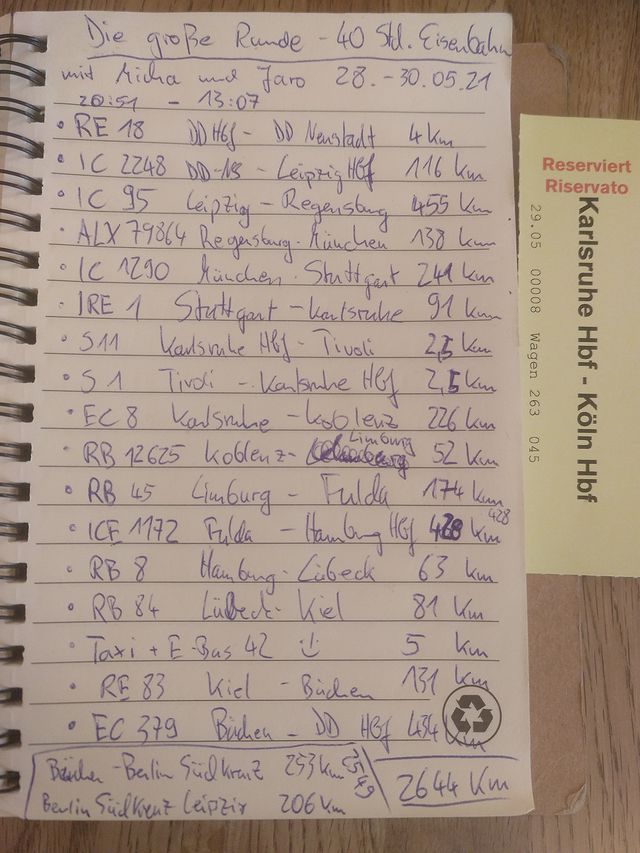 Die große Runde - 40 Std. Eisenbahn
mit Micha und Jaro 28. - 30.05.21
20:51 - 13:07
• RE 18 DD Hbf - DD Neustadt 4 km
• IC 2248 DD-NS - Leipzig Hbf 116 km
• IC 95 Leipzig - Regensburg 455 km
• ALX 79864 Regensburg - München 138 km
• IC 1290 München - Stuttgart 241 km
• IRE 1 Stuttgart - Karlsruhe 91 km
• S11 Karlsruhe Hbf - Tivoli 2,5 km
• S 1 Tivoli - Karlsruhe Hbf 2,5 km
• EC 8 Karlsruhe - Koblenz 226 km
• RB 12625 Koblenz - Limburg 52 km
• RB 45 Limburg - Fulda 174 km
• ICE 1172 Fulda - Hamburg Hbf 428 km 428
• RB 8 Hamburg - Lübeck 63 km
• RB 84 Lübeck - Kiel 81 km
• Taxi + E-Bus 42 :-) 5 km
• RE 83 Kiel - Büchen 131 km
• EC 379 Büchen - DD Hbf 434 km
Büchen - Berlin Südkreuz 253 km
Berlin Südkreuz Leipzig 206 km
2644 km
Reserviert
Riservato
Karlsruhe Hbf - Köln Hbf
29.05 00008 Wagen 263 045